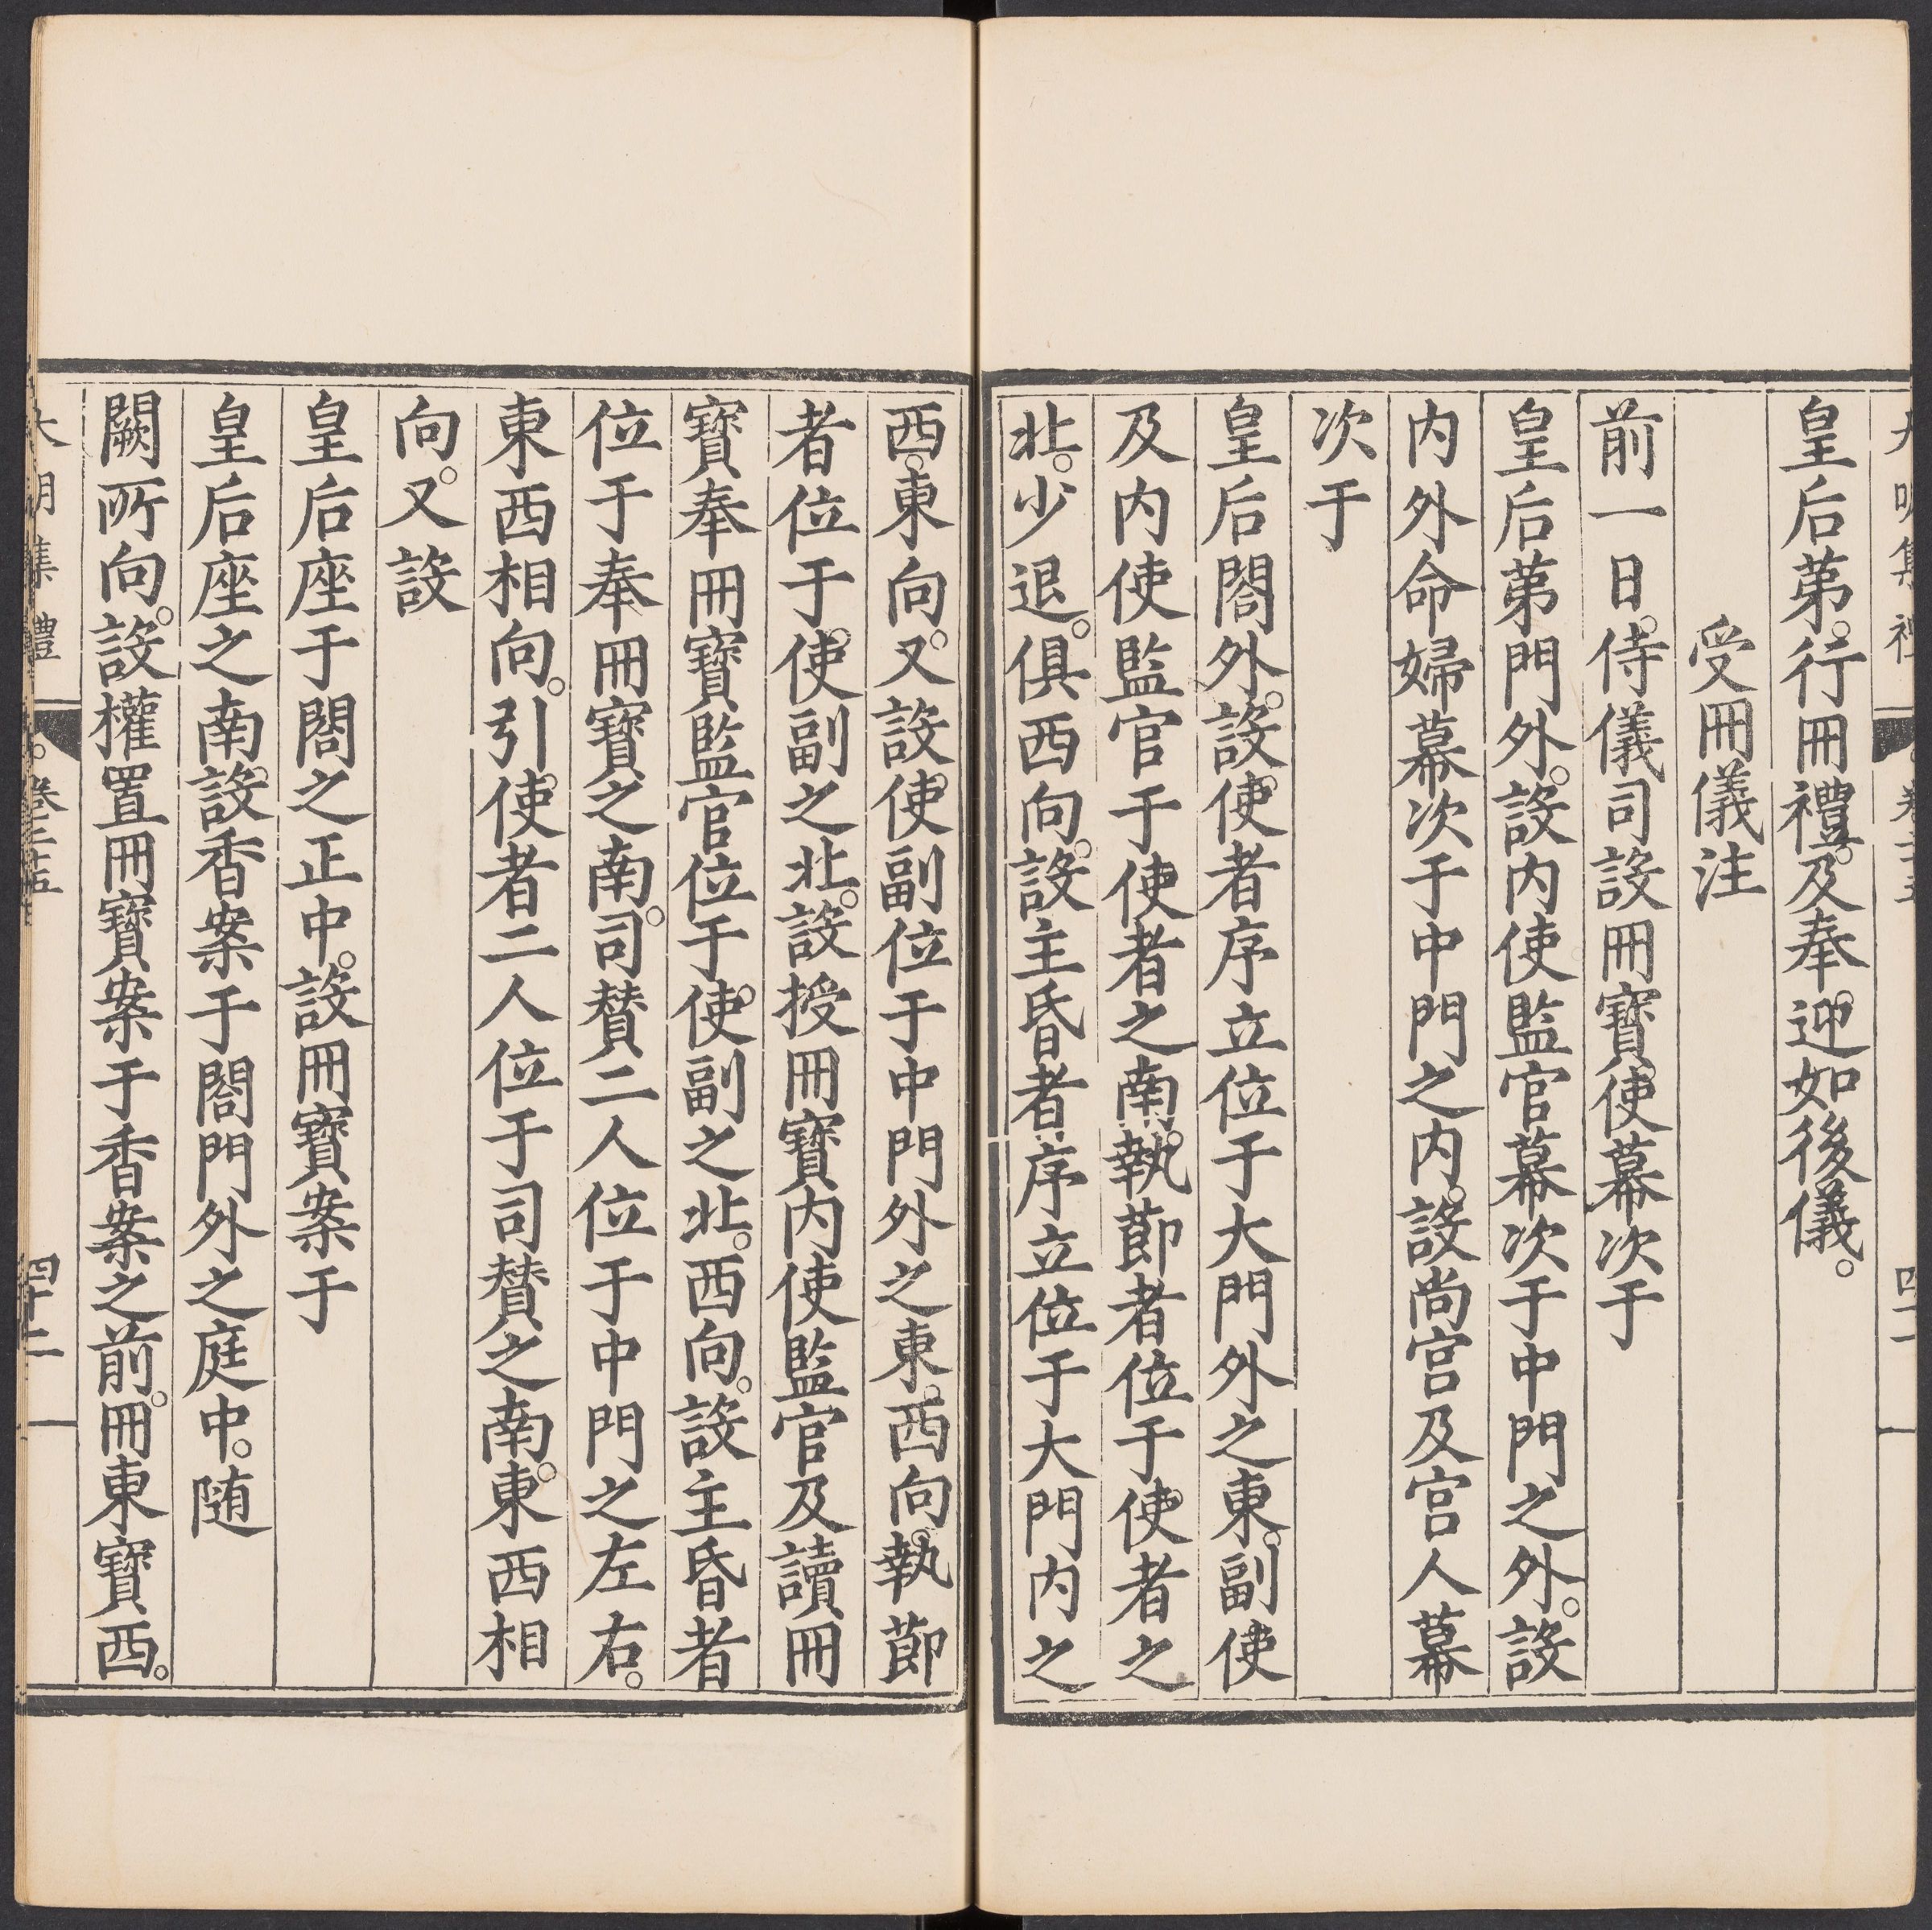 大明集禮 卷二十五 四十一
皇后第。行冊禮。及奉迎如後儀。
受冊儀注
前一日。侍儀司設冊寶使幕次于
皇后第門外。設内使監官幕次于中門之外。設
内外命婦幕次于中門之内。設尚宮及宮人幕
次于
皇后閤外。設使者序立位于大門外之東。副使
及内使監官于使者之南。執節者位于使者之
北。少退。俱西向。設主昏者序立位于大門内之
西。東向。又設使副位于中門外之東。西向。執節
者位于使副之北。設授冊寶内使監官及讀冊
寶奉冊寶監官位于使副之北。西向。設主昏者
位于奉冊寶之南。司賛二人位于中門之左右。
東西相向。引使者二人位于司賛之南。東西相
向。又設
皇后座于閤之正中。設冊寶案于
皇后座之南。設香案于閤門外之庭中。随
闕所向。設權置冊寶案于香案之前。冊東寶西。
大明集禮 卷二十五 四十二